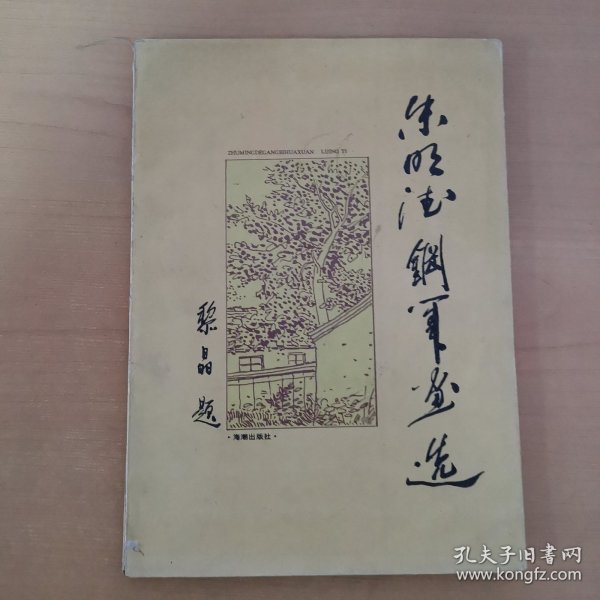 朱明德钢笔画选
ZHUMINGDEGANGBIHUAXUAN LIJING TI
黎晶题
·海潮出版社·
孔夫子旧书网
www.kongfz.com